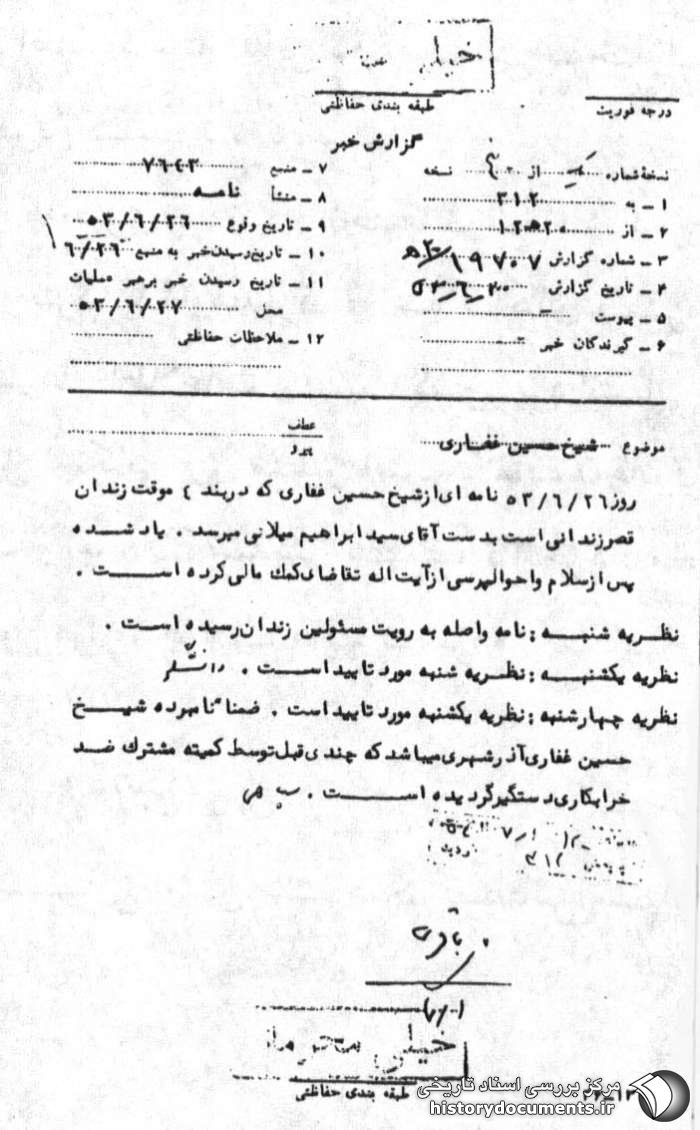 خیلی
طبقه بندی حفاظتی
درجه فوریت
گزارش خبر
نسخهٔ شماره از نسخه
۱ ـ به ۳۱۲
۲ ـ از
۳ ـ شماره گزارش ۱۹۷۰۷
۴ ـ تاریخ گزارش
۵ ـ پیوست ـ
۶ ـ گیرندگان خبر ـ
۷ ـ منبع ۷۶۴۳
۸ ـ منشأ نامـه
۹ ـ تاریخ وقوع ۵۳/۶/۲۶
۱۰ ـ تاریخ رسیدن خبر به منبع ۶/۲۶
۱۱ ـ تاریخ رسیدن خبر برهبر عملیات
محل ۵۳/۶/۲۷
۱۲ ـ ملاحظات حفاظتی
موضوع شیخ حسین غفاری
عطف
پیرو
روز ۵۳/۶/۲۶ نامه ای از شیخ حسین غفاری که در بند ٤ موقت زندان
قصر زندانی است بدست آقای سید ابراهیم میلانی میرسد . یاد شده
پس از سلام و احوالپرسی از آیت اله تقاضای کمک مالی کرده است .
نظریه شنبه : نامه واصله به رویت مسئولین زندان رسیده است .
نظریه یکشنبه : نظریه شنبه مورد تایید است .
نظریه چهارشنبه : نظریه یکشنبه مورد تایید است . ضمنا" نامبرده شیخ
حسین غفاری آذرشهری میباشد که چندی قبل توسط کمیته مشترک ضد
خرابکاری دستگیر گردیده است .
۳۱۲
خیلی محرمانه
طبقه بندی حفاظتی
مرکز بررسی اسناد تاریخی
historydocuments.ir